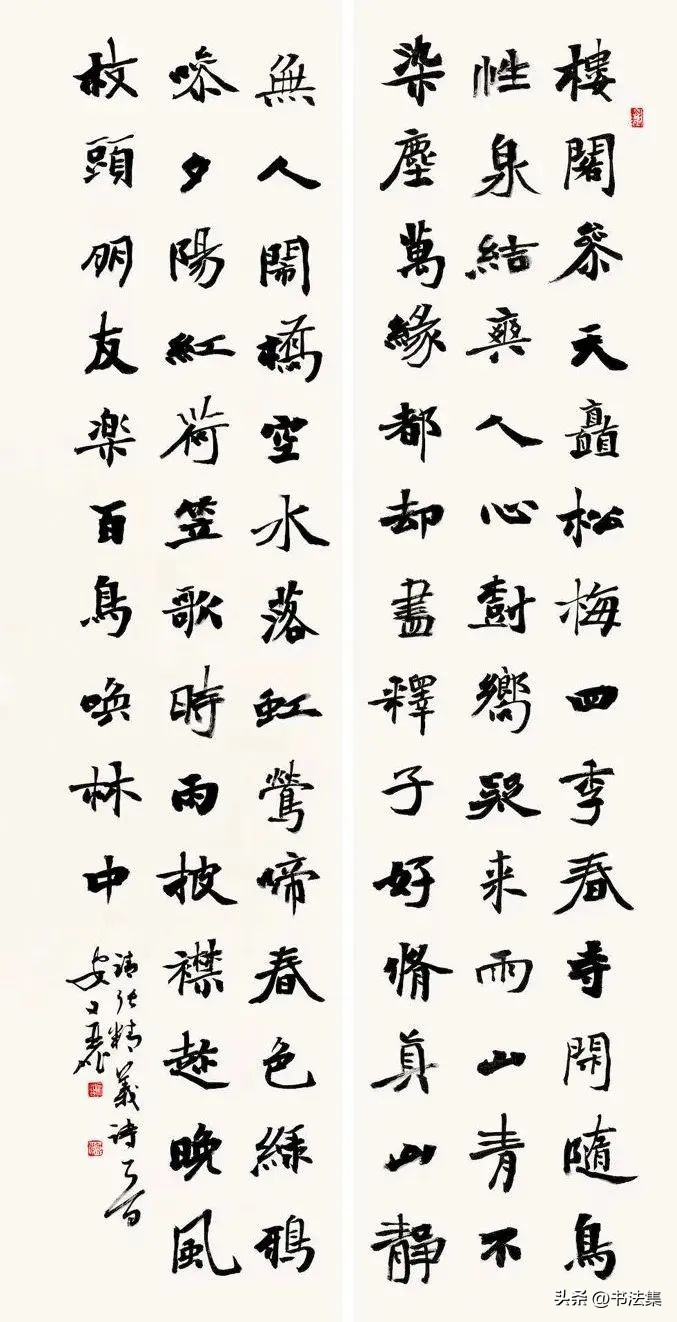 樓閣參天矗松梅四季春寺閑隨鳥
性泉結爽人心樹嚮疑来雨山青不
染塵萬緣都却盡釋子好脩真山靜
無人鬧橋空水落虹鶯啼春色緑鴉
噪夕陽紅荷笠歌時雨披襟趁晚風
枝頭朋友楽百鳥喚林中
精義詩二首
头条 @书法集